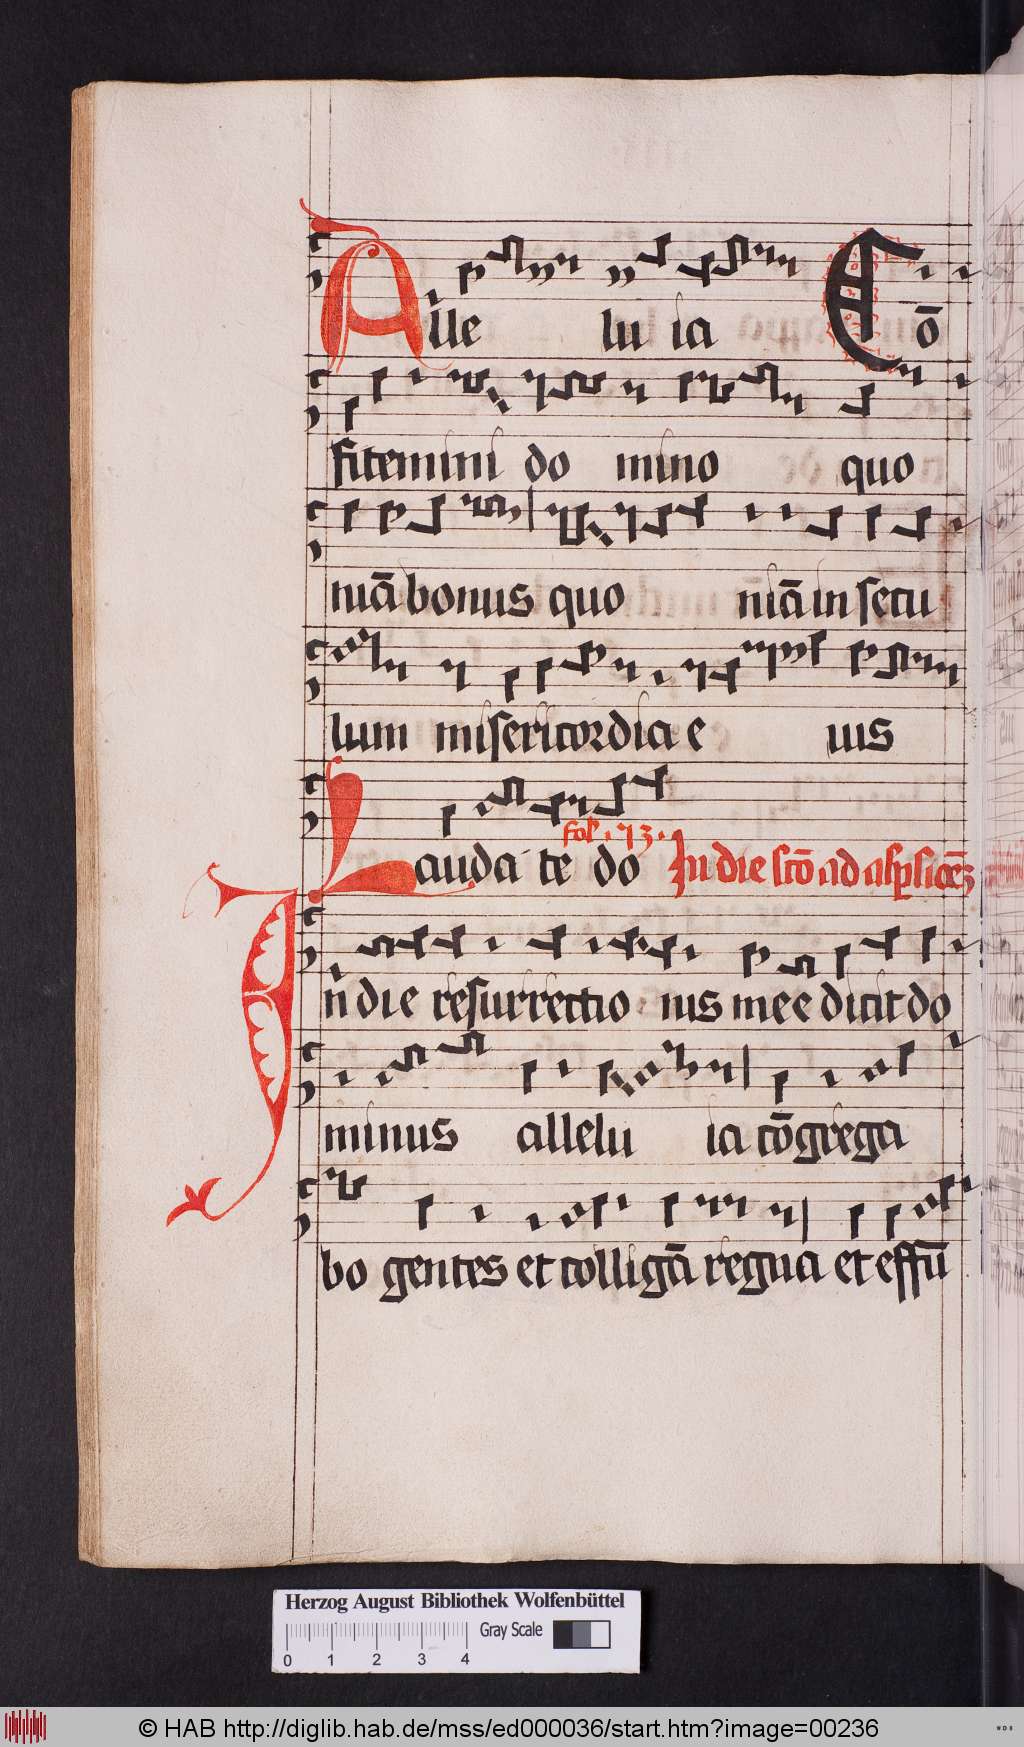 Alle lu ia Cō
fitemini do mino quo
niā bonus quo niā in secu
lum misericordia e ius
fol. 73.
Lauda te do In die scō ad
In die resurrectio nis mee dicit do
minus allelu ia cōgrega
bo gentes et colligā regna et effū
Herzog August Bibliothek Wolfenbüttel
Gray Scale
0 1 2 3 4
© HAB http://diglib.hab.de/mss/ed000036/start.htm?image=00236